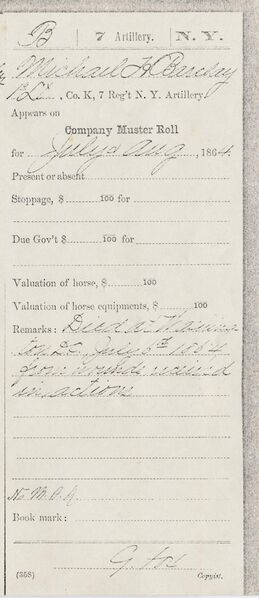 B | 7 Artillery. | N. Y.
Michael H Barclay
Pvt., Co. K, 7 Reg't N. Y. Artillery.
Appears on
Company Muster Roll
for July & Aug, 1864.
Present or absent
Stoppage, $ 100 for
Due Gov't $ 100 for
Valuation of horse, $ 100
Valuation of horse equipments, $ 100
Remarks: Died at Washing-
ton D.C. July 6th 1864
from wounds received
in action
No M.O.R.
Book mark:
G. Fox
(358) Copyist.